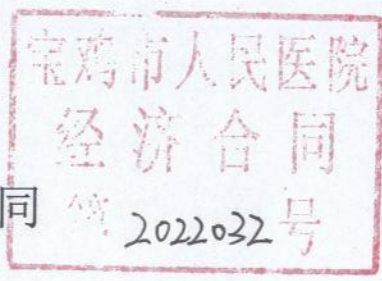 宝鸡市人民医院
经济合同
同 第2022032号